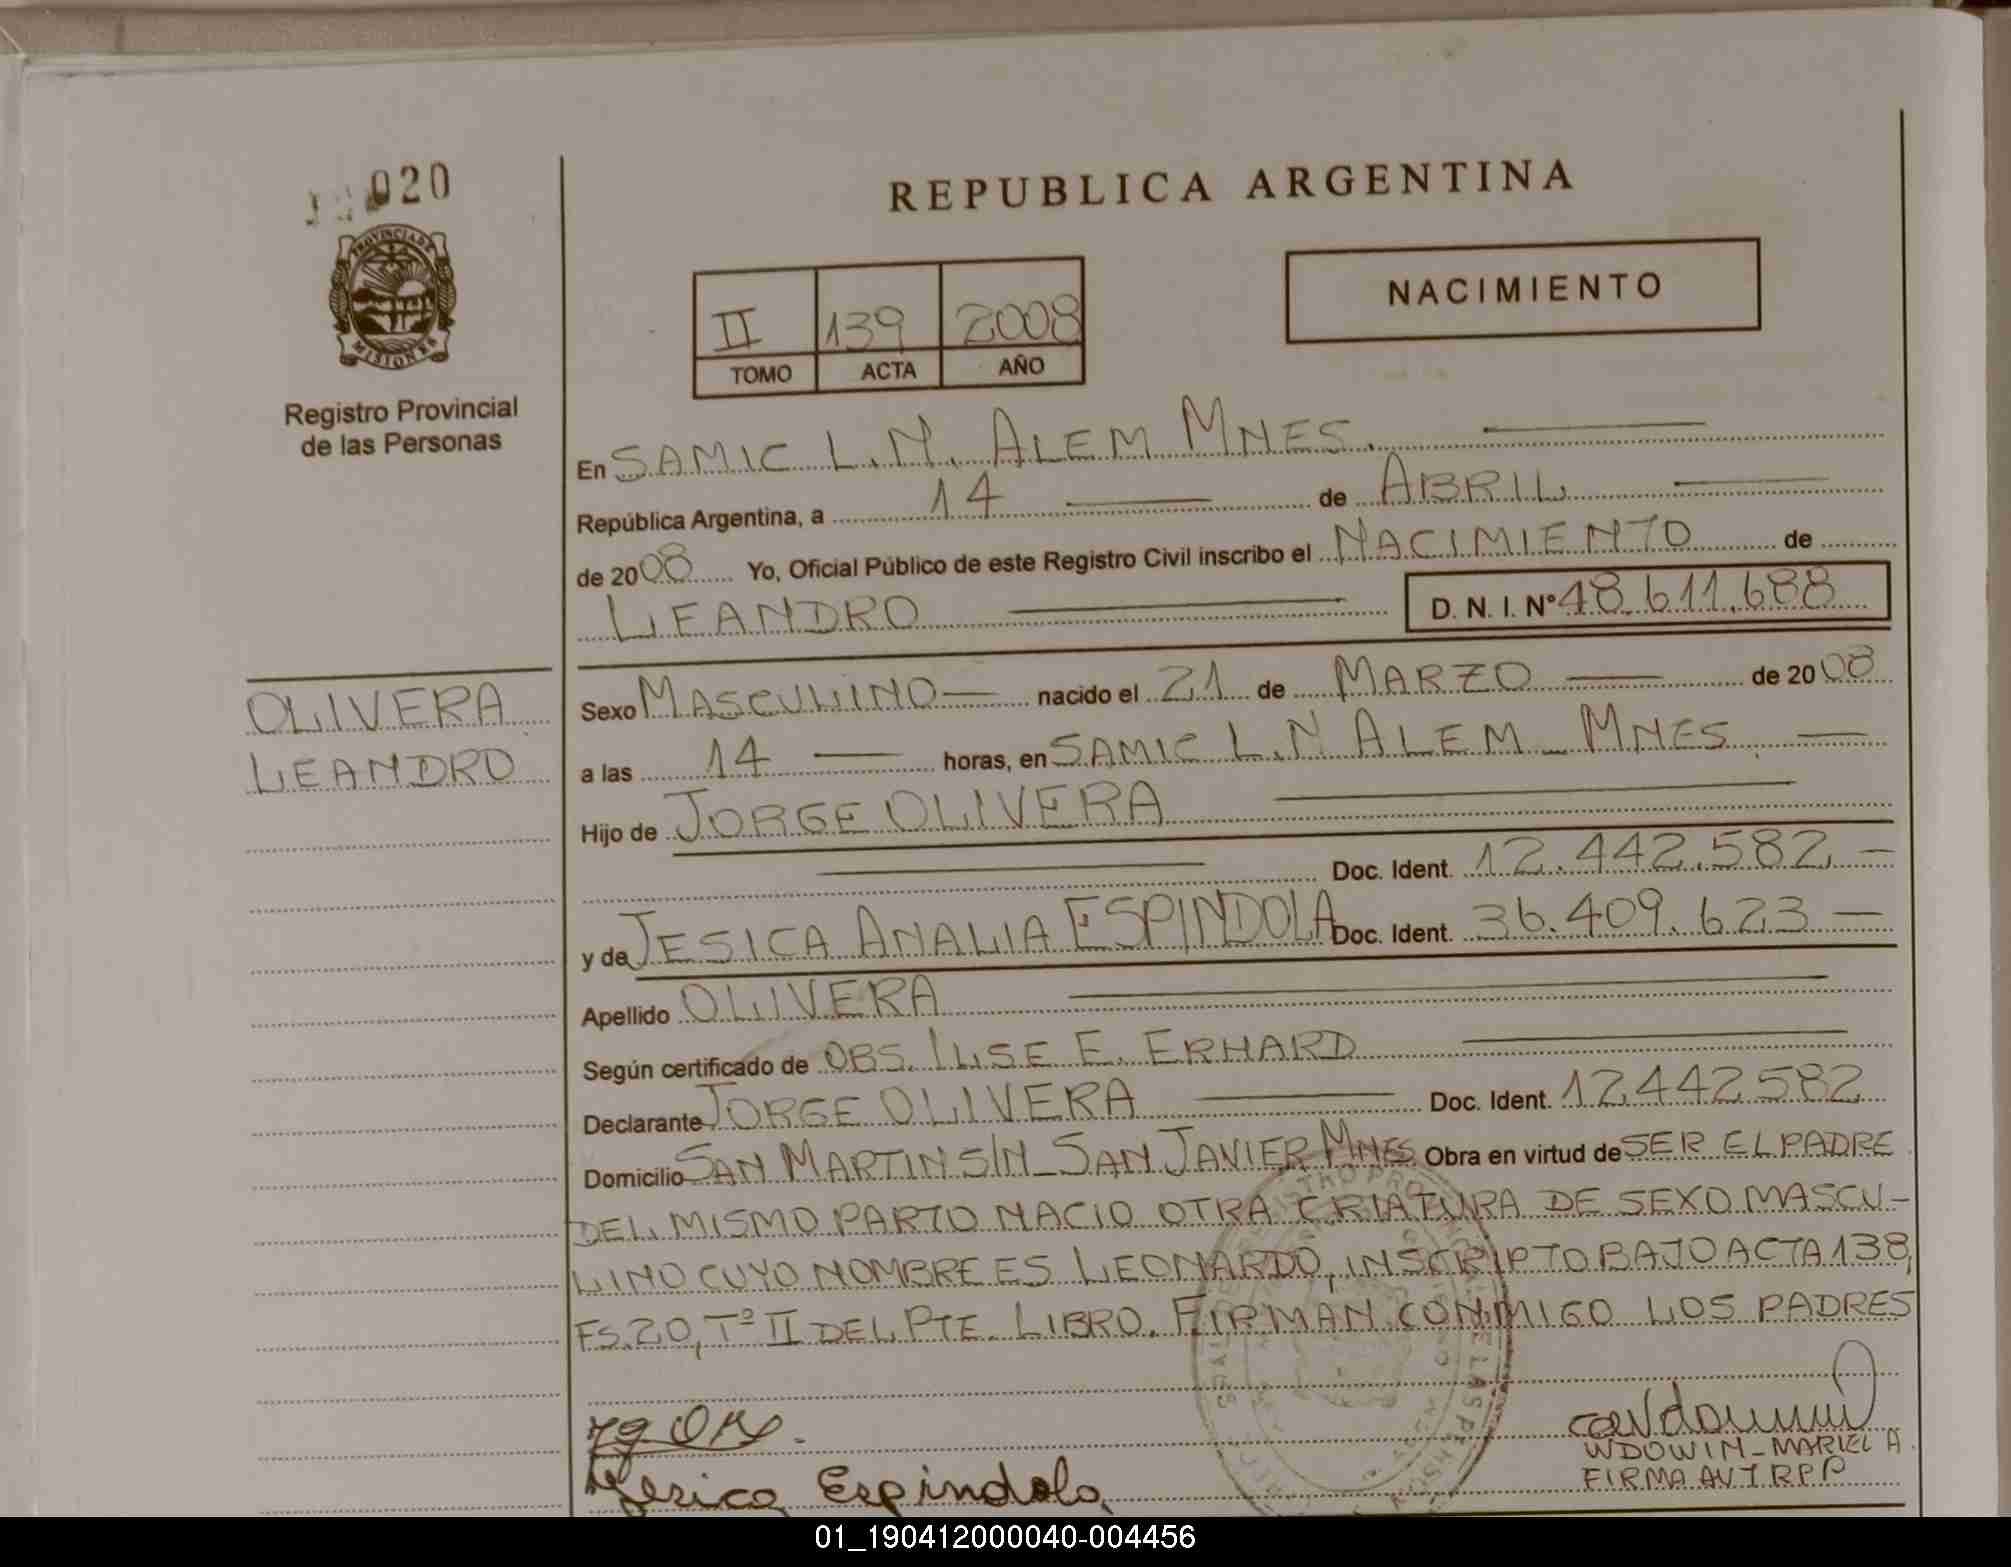 020
PROVINCIA DE
MISIONES
Registro Provincial
de las Personas
REPUBLICA ARGENTINA
NACIMIENTO
II 139 2008
TOMO ACTA AÑO
En SAMIC L.N. ALEM MNES.
República Argentina, a 14 de ABRIL
de 2008 Yo, Oficial Público de este Registro Civil inscribo el NACIMIENTO de
LEANDRO D. N. I. Nº 48.611.688
OLIVERA
LEANDRO
Sexo MASCULINO nacido el 21 de MARZO de 2008
a las 14 horas, en SAMIC L.N ALEM - MNES
Hijo de JORGE OLIVERA
Doc. Ident. 12.442.582
y de JESICA ANALIA ESPINDOLA Doc. Ident. 36.409.623
Apellido OLIVERA
Según certificado de OBS. ILSE E. ERHARD
Declarante JORGE OLIVERA Doc. Ident. 12.442.582
Domicilio SAN MARTIN S/N - SAN JAVIER MNES Obra en virtud de SER EL PADRE
DEL MISMO PARTO NACIO OTRA CRIATURA DE SEXO MASCU-
LINO CUYO NOMBRE ES LEONARDO, INSCRIPTO BAJO ACTA 138,
FS. 20, Tº II DEL PTE. LIBRO. FIRMAN CONMIGO LOS PADRES
Jesica Espindola
WDOWIN - MARIEL A
FIRMA AUT RPP
01_190412000040-004456